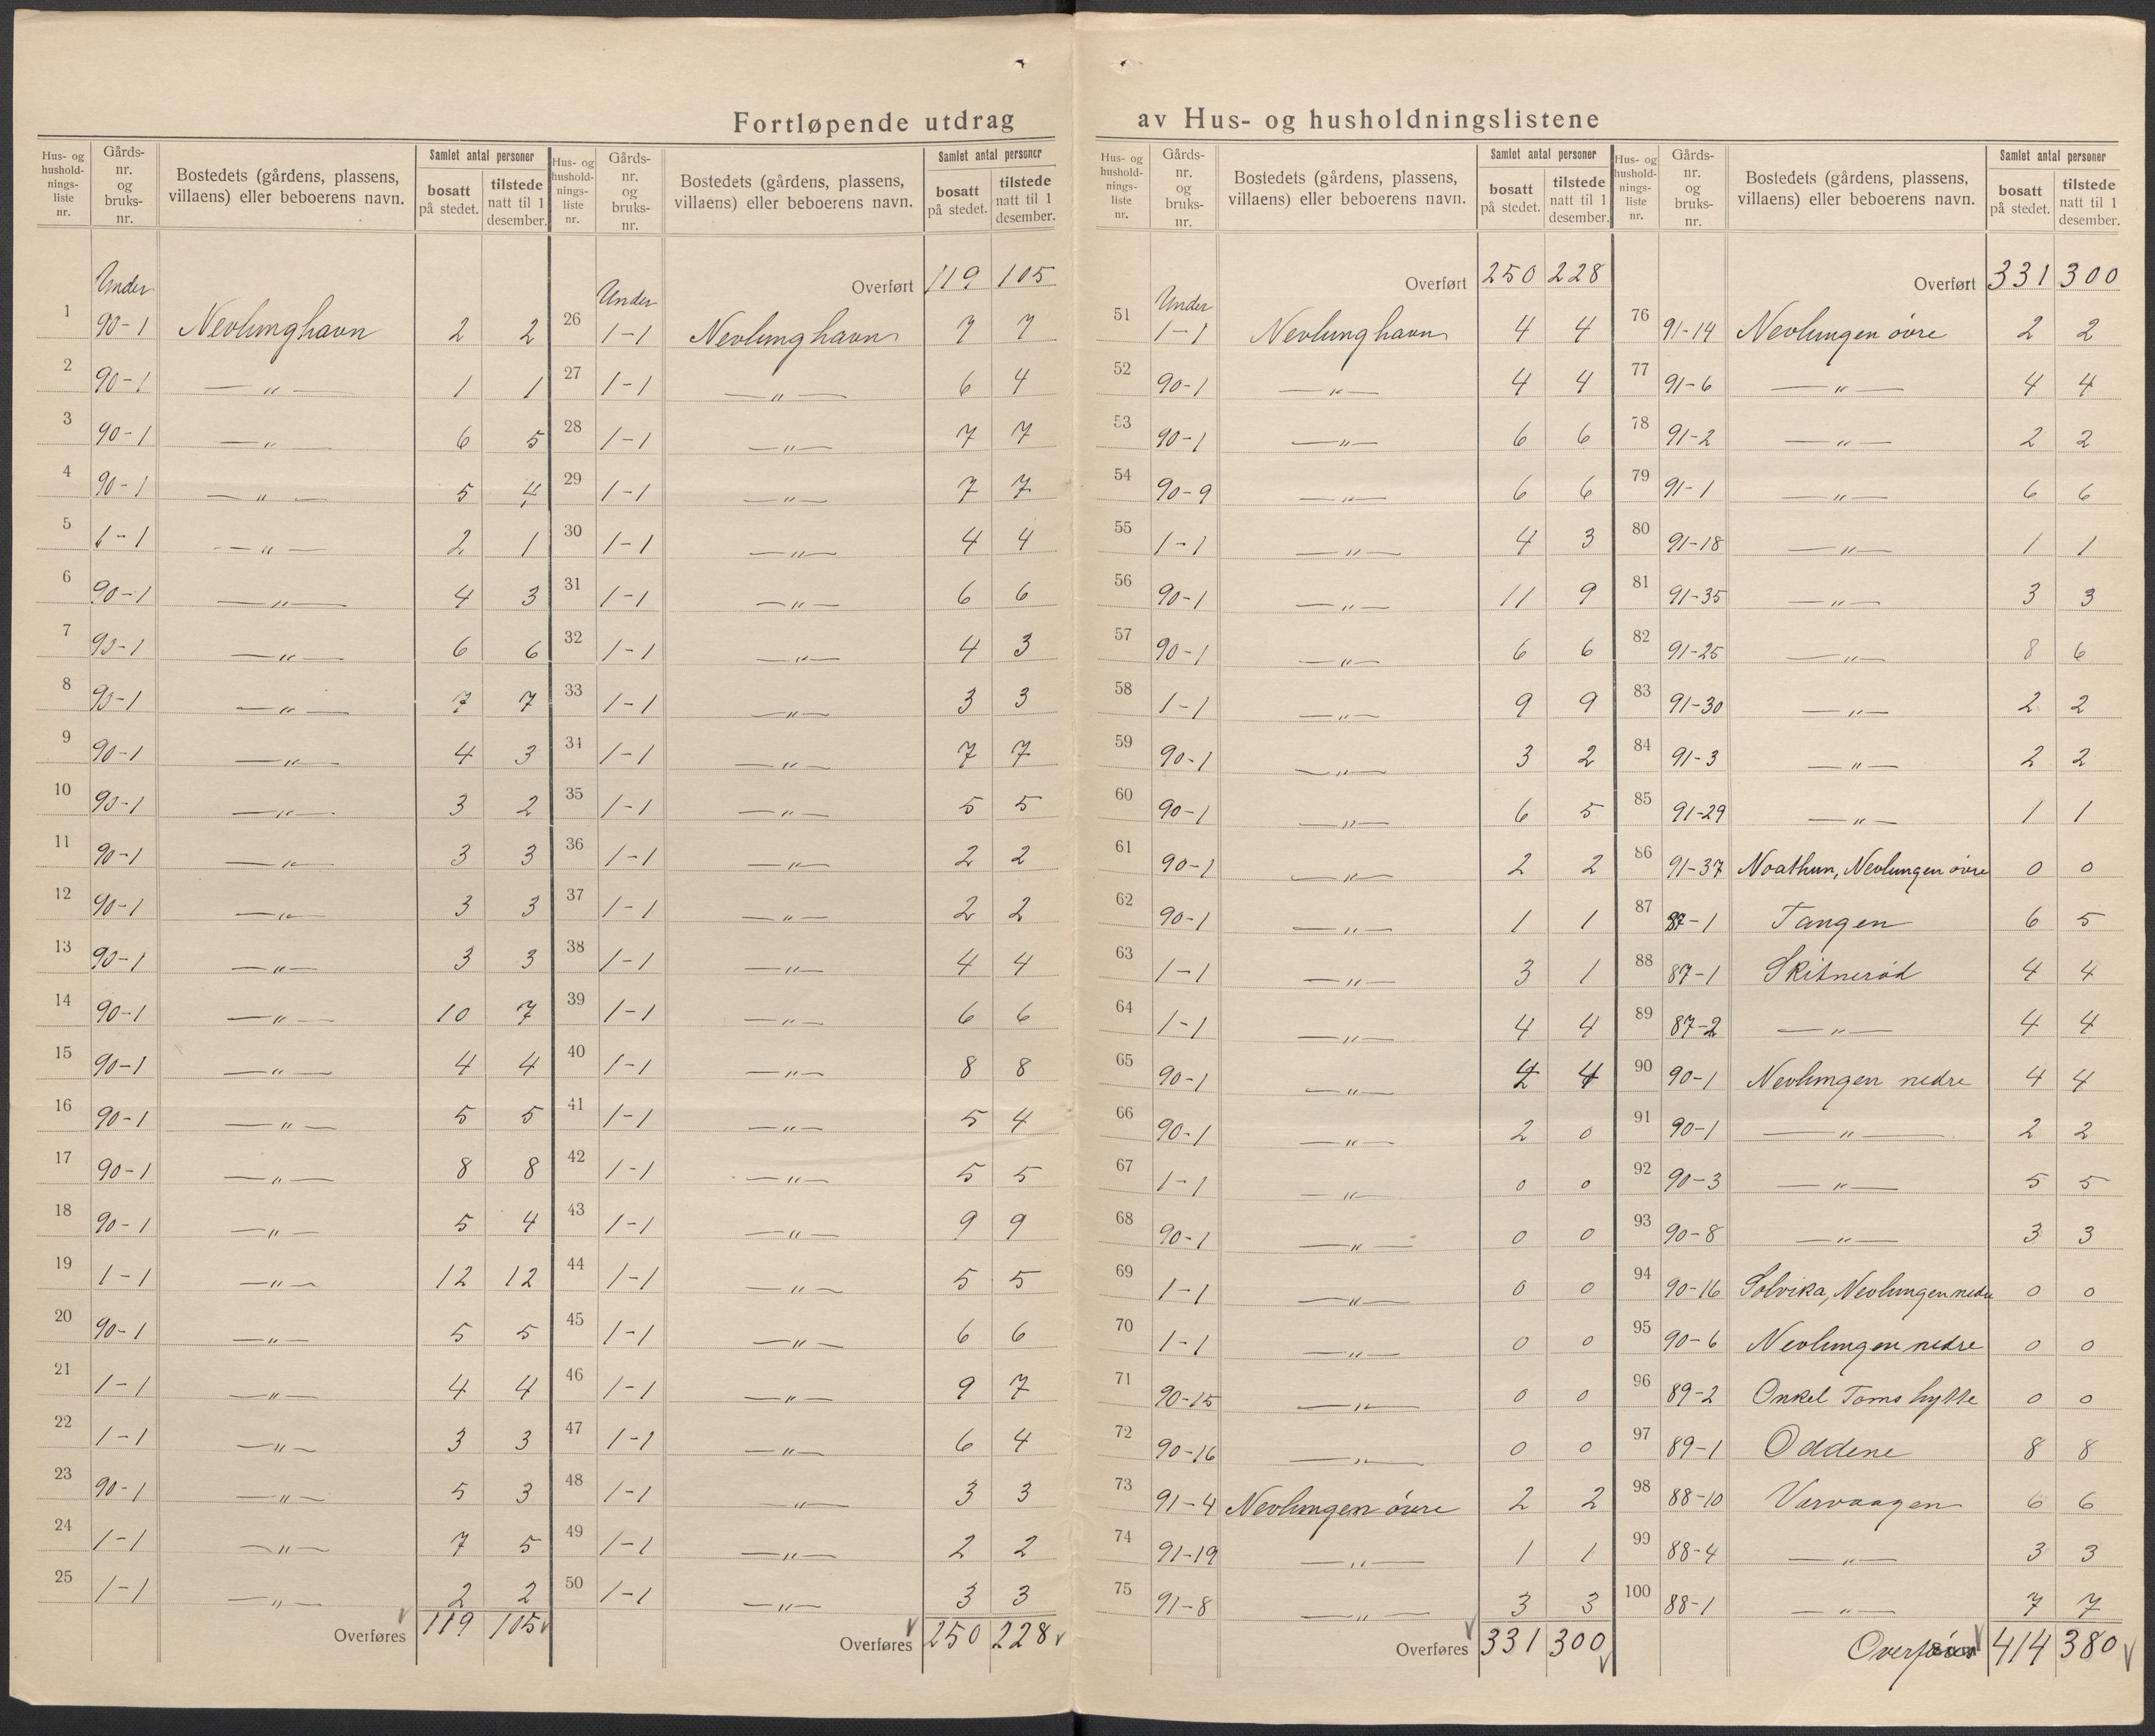 Fortløpende utdrag av Hus- og husholdningslistene
Hus- og husholdnings-liste nr. | Gårds-nr. og bruks-nr. | Bostedets (gårdens, plassens, villaens) eller beboerens navn. | Samlet antal personer | bosatt på stedet. | tilstede natt til 1 desember.
Under
1 90-1 Nevlunghavn 2 2
2 90-1 —"— 1 1
3 90-1 —"— 6 5
4 90-1 —"— 5 4
5 1-1 —"— 2 1
6 90-1 —"— 4 3
7 90-1 —"— 6 6
8 90-1 —"— 7 7
9 90-1 —"— 4 3
10 90-1 —"— 3 2
11 90-1 —"— 3 3
12 90-1 —"— 3 3
13 90-1 —"— 3 3
14 90-1 —"— 10 7
15 90-1 —"— 4 4
16 90-1 —"— 5 5
17 90-1 —"— 8 8
18 90-1 —"— 5 4
19 1-1 —"— 12 12
20 90-1 —"— 5 5
21 1-1 —"— 4 4
22 1-1 —"— 3 3
23 90-1 —"— 5 3
24 1-1 —"— 7 5
25 1-1 —"— 2 2
Overføres 119 105
Hus- og husholdnings-liste nr. | Gårds-nr. og bruks-nr. | Bostedets (gårdens, plassens, villaens) eller beboerens navn. | Samlet antal personer | bosatt på stedet. | tilstede natt til 1 desember.
Overført 119 105
Under
26 1-1 Nevlunghavn 7 7
27 1-1 —"— 6 4
28 1-1 —"— 7 7
29 1-1 —"— 7 7
30 1-1 —"— 4 4
31 1-1 —"— 6 6
32 1-1 —"— 4 3
33 1-1 —"— 3 3
34 1-1 —"— 7 7
35 1-1 —"— 5 5
36 1-1 —"— 2 2
37 1-1 —"— 2 2
38 1-1 —"— 4 4
39 1-1 —"— 6 6
40 1-1 —"— 8 8
41 1-1 —"— 5 4
42 1-1 —"— 5 5
43 1-1 —"— 9 9
44 1-1 —"— 5 5
45 1-1 —"— 6 6
46 1-1 —"— 9 7
47 1-1 —"— 6 4
48 1-1 —"— 3 3
49 1-1 —"— 2 2
50 1-1 —"— 3 3
Overføres 250 228
Hus- og husholdnings-liste nr. | Gårds-nr. og bruks-nr. | Bostedets (gårdens, plassens, villaens) eller beboerens navn. | Samlet antal personer | bosatt på stedet. | tilstede natt til 1 desember.
Overført 250 228
Under
51 1-1 Nevlunghavn 4 4
52 90-1 —"— 4 4
53 90-1 —"— 6 6
54 90-9 —"— 6 6
55 1-1 —"— 4 3
56 90-1 —"— 11 9
57 90-1 —"— 6 6
58 1-1 —"— 9 9
59 90-1 —"— 3 2
60 90-1 —"— 6 5
61 90-1 —"— 2 2
62 90-1 —"— 1 1
63 1-1 —"— 3 1
64 1-1 —"— 4 4
65 90-1 —"— 4 4
66 90-1 —"— 2 0
67 1-1 —"— 0 0
68 90-1 —"— 0 0
69 1-1 —"— 0 0
70 1-1 —"— 0 0
71 90-15 —"— 0 0
72 90-16 —"— 0 0
73 91-4 Nevlungen øvre 2 2
74 91-19 —"— 1 1
75 91-8 —"— 3 3
Overføres 331 300
Hus- og husholdnings-liste nr. | Gårds-nr. og bruks-nr. | Bostedets (gårdens, plassens, villaens) eller beboerens navn. | Samlet antal personer | bosatt på stedet. | tilstede natt til 1 desember.
Overført 331 300
76 91-14 Nevlungen øvre 2 2
77 91-6 —"— 4 4
78 91-2 —"— 2 2
79 91-1 —"— 6 6
80 91-18 —"— 1 1
81 91-35 —"— 3 3
82 91-25 —"— 8 6
83 91-30 —"— 2 2
84 91-3 —"— 2 2
85 91-29 —"— 1 1
86 91-37 Noathun, Nevlungen øvre 0 0
87 87-1 Tangen 6 5
88 87-1 Skitnerød 4 4
89 87-2 —"— 4 4
90 90-1 Nevlungen nedre 4 4
91 90-1 —"— 2 2
92 90-3 —"— 5 5
93 90-8 —"— 3 3
94 90-16 Solvika, Nevlungen nedre 0 0
95 90-6 Nevlungen nedre 0 0
96 89-2 Onkel Toms hytte 0 0
97 89-1 Oddene 8 8
98 88-10 Varvaagen 6 6
99 88-4 —"— 3 3
100 88-1 —"— 7 7
414 380